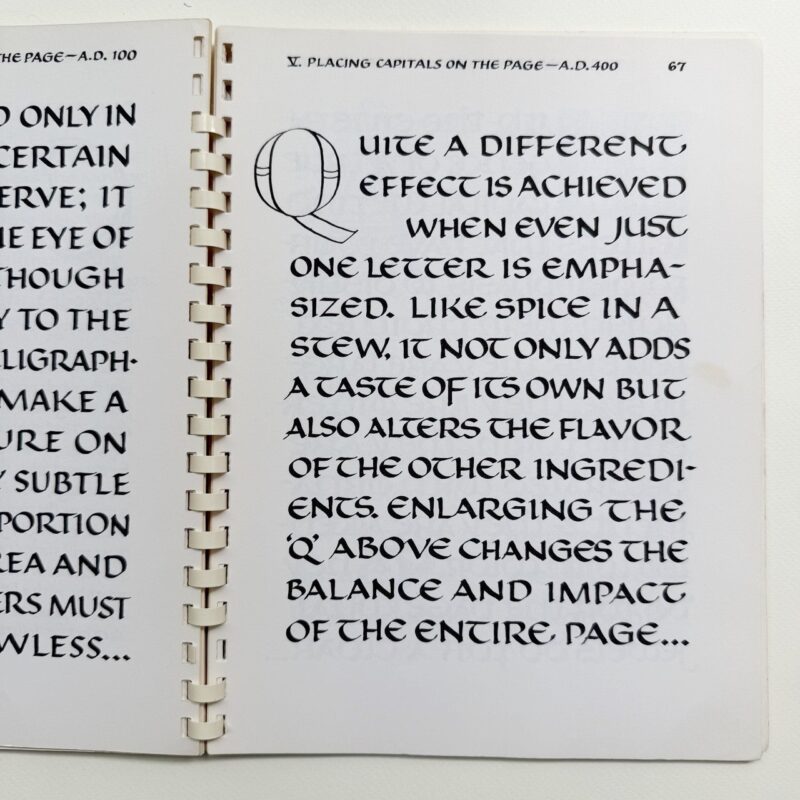 THE PAGE—A.D. 100
ONLY IN
CERTAIN
ERVE; IT
EYE OF
THOUGH
Y TO THE
LLIGRAPH-
MAKE A
URE ON
Y SUBTLE
PORTION
REA AND
ERS MUST
WLESS...
V. PLACING CAPITALS ON THE PAGE—A.D. 400 67
QUITE A DIFFERENT
EFFECT IS ACHIEVED
WHEN EVEN JUST
ONE LETTER IS EMPHA-
SIZED. LIKE SPICE IN A
STEW, IT NOT ONLY ADDS
A TASTE OF ITS OWN BUT
ALSO ALTERS THE FLAVOR
OF THE OTHER INGREDI-
ENTS. ENLARGING THE
'Q' ABOVE CHANGES THE
BALANCE AND IMPACT
OF THE ENTIRE PAGE...